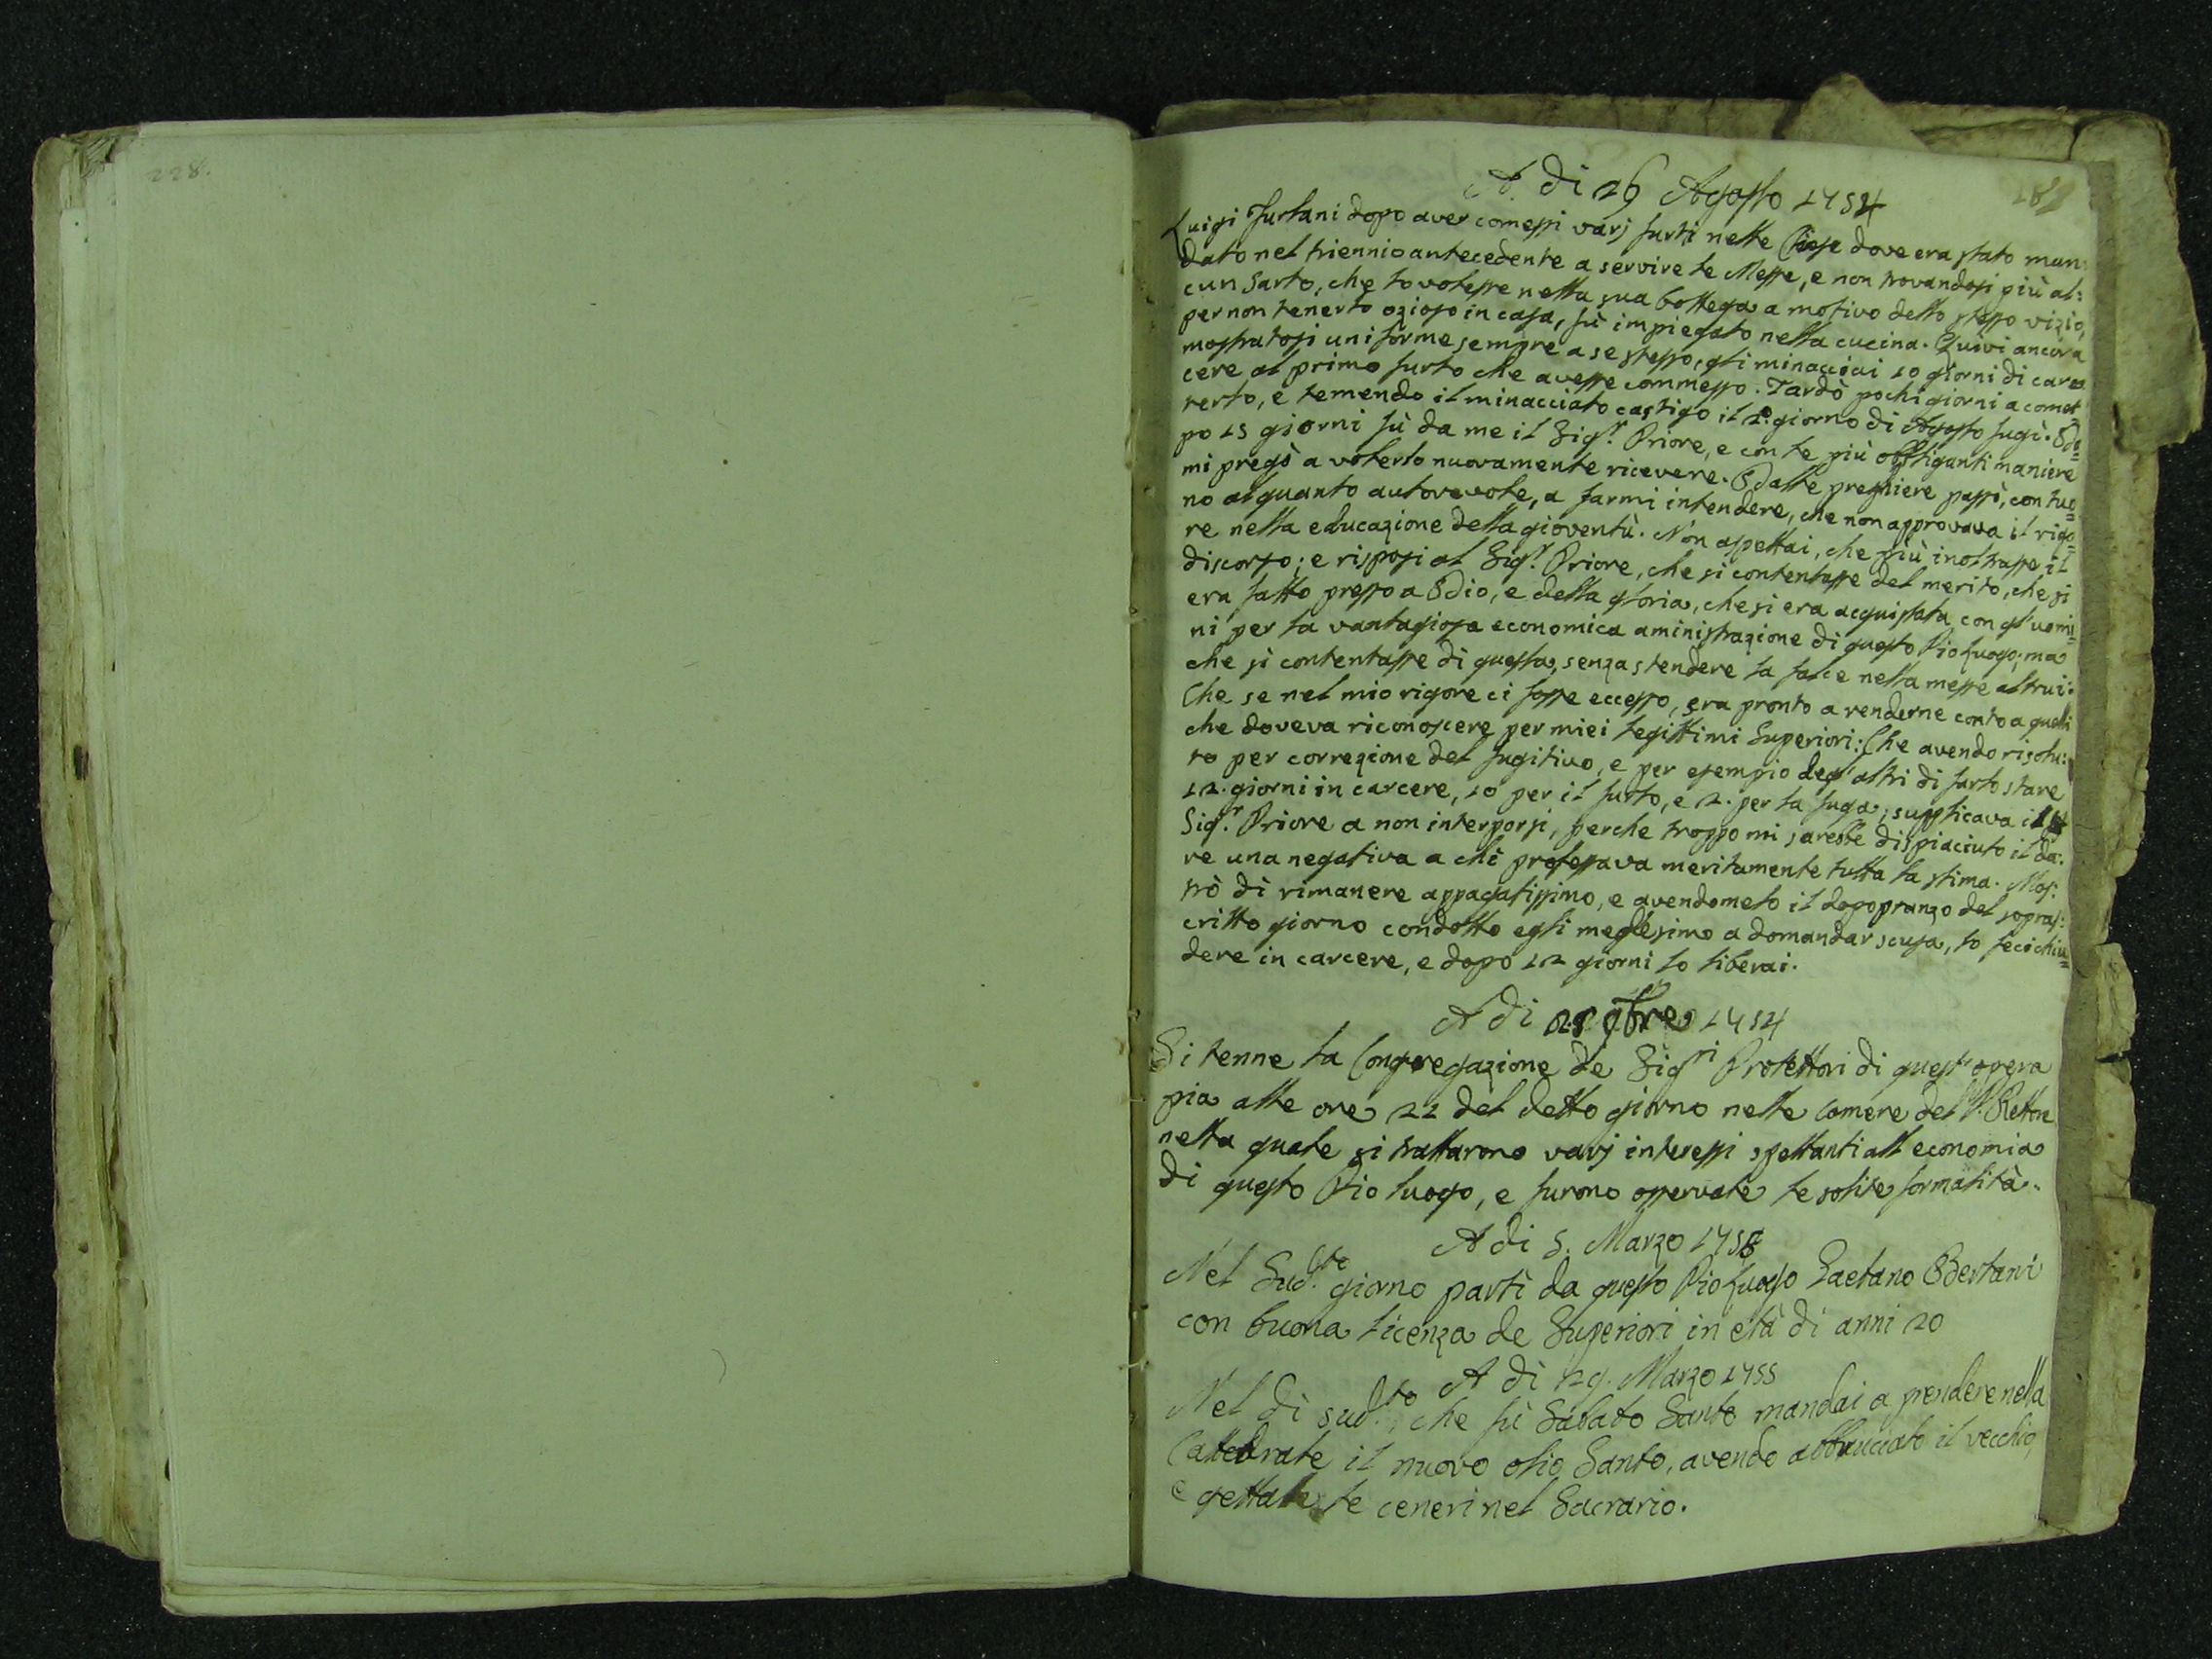 228.
A di 16 Agosto 1754
Luigi Furlani dopo aver comessi varj furti nelle Chiese dove era stato man:
dato nel triennio antecedente a servire le Messe, e non trovandosi più al:
cun Sarto, che lo volesse nella sua bottega a motivo dello stesso vizio,
per non tenerlo ozioso in casa, fù impiegato nella cucina. Quivi ancora
mostratosi uniforme sempre a se stesso, gli minacciai 10 giorni di car
cere al primo furto che avesse commesso. Tardò pochi giorni a comet
terlo, e temendo il minacciato castigo il 1.º giorno di Agosto fugì. Do=
po 15 giorni fù da me il Sig.r Priore, e con le più obbliganti maniere
mi pregò a volerlo nuovamente ricevere. Dalle preghiere passò, con tuo=
no alquanto autorevole, a farmi intendere, che non approvava il rigo=
re nella educazione della gioventù. Non aspettai, che più inoltrasse il
discorso; e risposi al Sig.r Priore, che si contentasse del merito, che si
era fatto presso a Dio, e della gloria, che si era acquistata con gl'uomi=
ni per la vantagiosa economica aministrazione di questo Pio Luogo; ma
che si contentasse di questa, senza stendere la falce nella messe altrui:
Che se nel mio rigore ci fosse eccesso, era pronto a renderne conto a quelli
che doveva riconoscere per miei legittimi Superiori: Che avendo risolu:
to per correzione del fugitivo, e per esempio degl'altri di farlo stare
12. giorni in carcere, 10 per il furto, e 2. per la fuga; supplicava il
Sig.r Priore a non interporsi, perche troppo mi sarebbe dispiaciuto il da:
re una negativa a chi professava meritamente tutta la stima. Mos:
trò di rimanere appagatissimo, e avendomelo il dopopranzo del sopras:
critto giorno condotto egli medesimo a domandar scusa, lo feci chiu=
dere in carcere, e dopo 12 giorni lo liberai.
A di 9bre 1754
Si tenne la Congregazione de Sig.ri Protettori di quest'opera
pia alle ore 22 del detto giorno nelle Camere del P. Rettore
nella quale si trattarono varj interessi spettanti all economia
di questo Pio luogo, e furono osservate le solite formalità.
A di 5. Marzo 1755
Nel Sud.to giorno partì da questo Pio Luogo Gaetano Bertani
con buona licenza de Superiori in età di anni 20
A di 29. Marzo 1755
Nel di sud.to, che fù Sabato Santo mandai a prendere nella
Cattedrale il nuovo olio Santo, avendo abbrucciato il vecchio
e gettate le ceneri nel Sacrario.